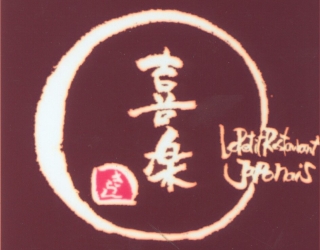 喜楽
きらく
Le Petit Restaurant
Japonais